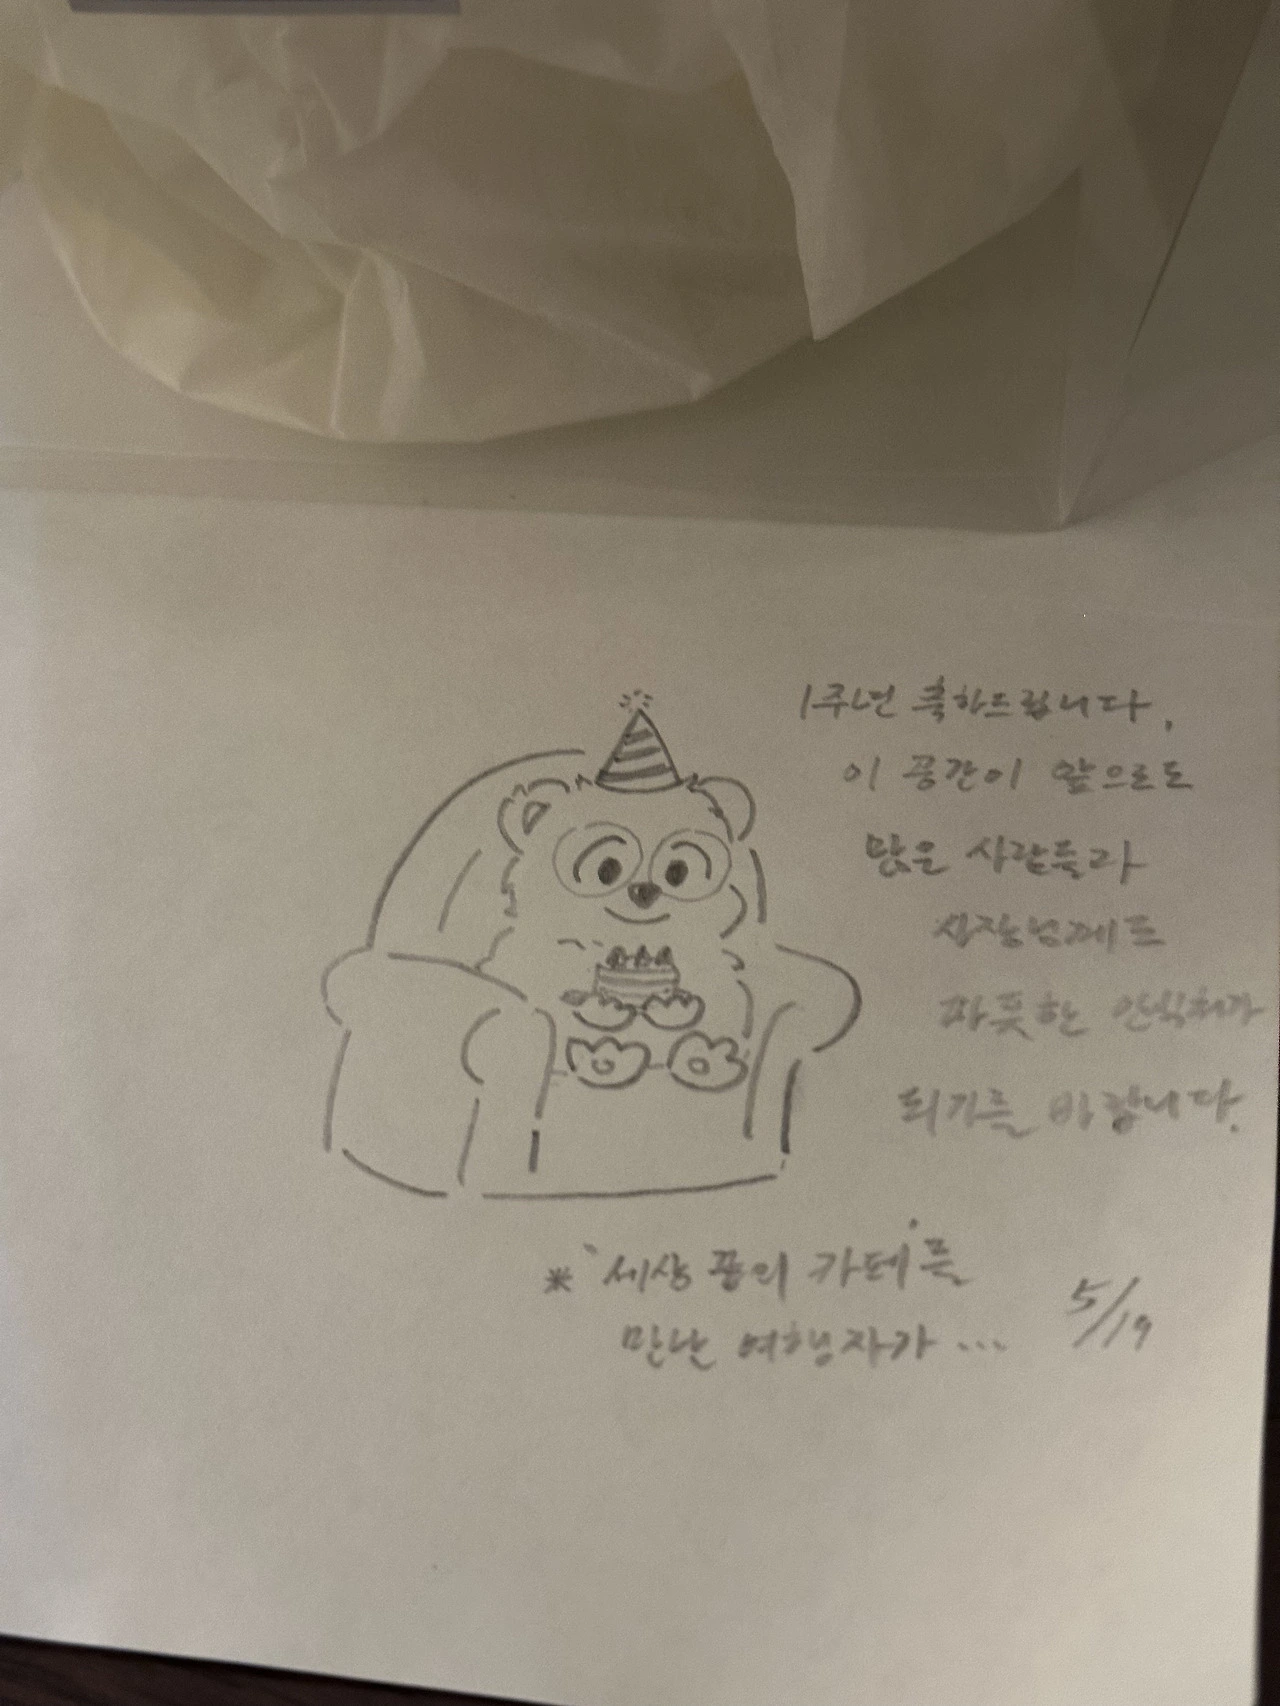 1주년 축하드립니다.
이 공간이 앞으로도
많은 사람들과
사장님께도
따뜻한 안식처가
되기를 바랍니다.
* '세상 끝의 카페'를
만난 여행자가 ...
5/19